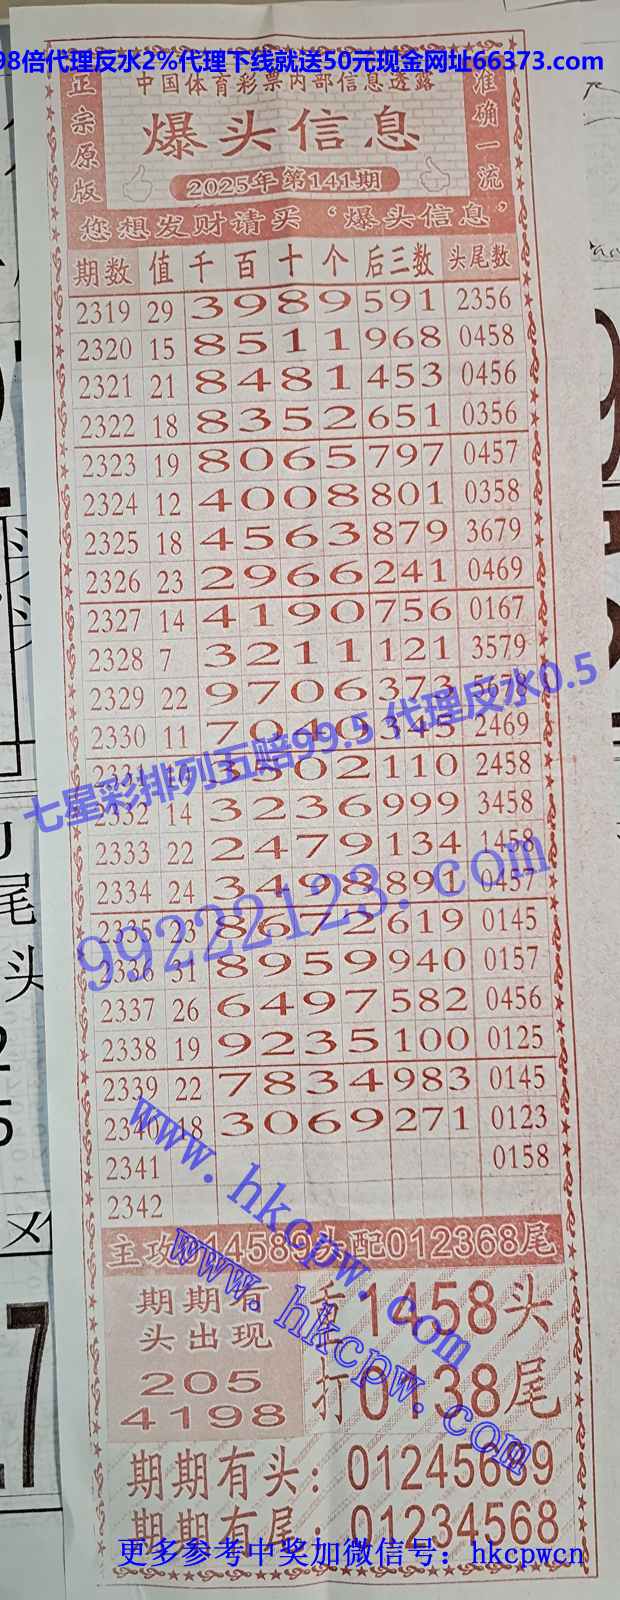 98倍代理反水2%代理下线就送50元现金网址66373.com
正宗原版
中国体育彩票内部信息透露
准确一流
爆头信息
2025年第141期
您想发财请买‘爆头信息’
期数 值 千 百 十 个 后三数 头尾数
2319 29 3 9 8 9 591 2356
2320 15 8 5 1 1 968 0458
2321 21 8 4 8 1 453 0456
2322 18 8 3 5 2 651 0356
2323 19 8 0 6 5 797 0457
2324 12 4 0 0 8 801 0358
2325 18 4 5 6 3 879 3679
2326 23 2 9 6 6 241 0469
2327 14 4 1 9 0 756 0167
2328 7 3 2 1 1 121 3579
2329 22 9 7 0 6 373 5678
2330 11 7 0 4 0 345 2469
七星彩排列五赔99.5 代理反水0.5
2331 10 3 5 0 2 110 2458
2332 14 3 2 3 6 999 3458
2333 22 2 4 7 9 134 1458
2334 24 3 4 9 8 891 0457
99222123.com
2335 23 8 6 7 2 619 0145
2336 31 8 9 5 9 940 0157
2337 26 6 4 9 7 582 0456
2338 19 9 2 3 5 100 0125
2339 22 7 8 3 4 983 0145
2340 18 3 0 6 9 271 0123
2341 0158
2342
www.hkcpw.com
主攻014589头配012368尾
www.hkcpw.com
期期有
头出现
205
4198
重1458头
打0138尾
期期有头：01245689
期期有尾：01234568
更多参考中奖加微信号：hkcpwcn